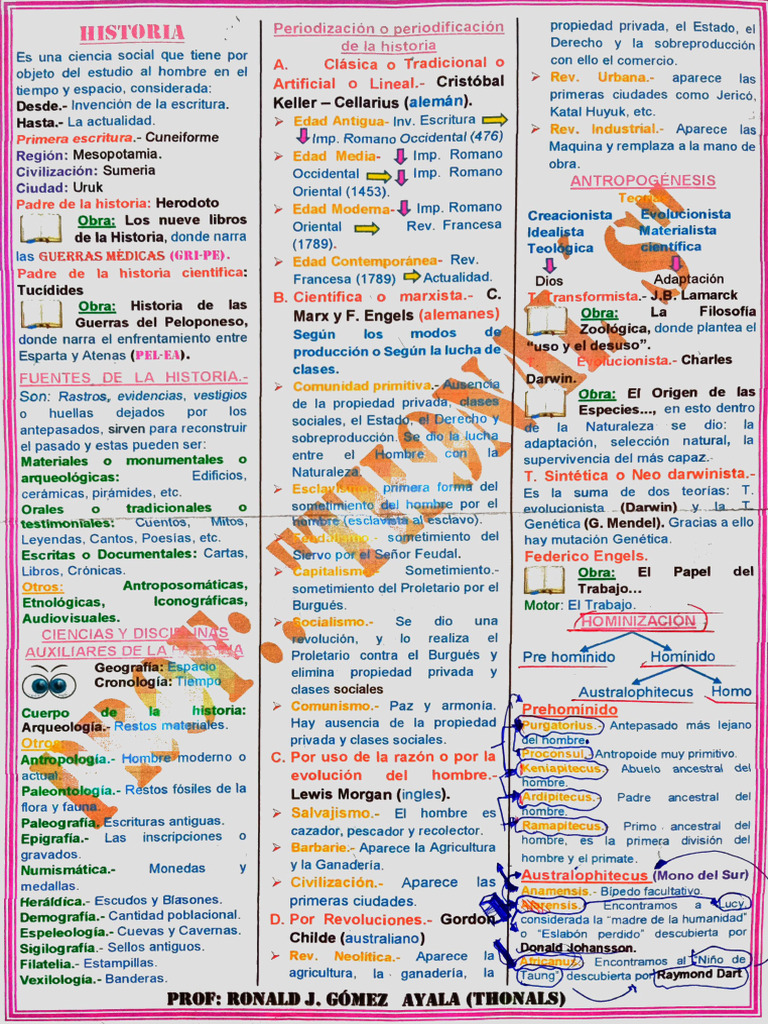 HISTORIA
Es una ciencia social que tiene por
objeto del estudio al hombre en el
tiempo y espacio, considerada:
Desde.- Invención de la escritura.
Hasta.- La actualidad.
Primera escritura.- Cuneiforme
Región: Mesopotamia.
Civilización: Sumeria
Ciudad: Uruk
Padre de la historia: Herodoto
Obra: Los nueve libros
de la Historia, donde narra
las GUERRAS MÉDICAS (GRI-PE).
Padre de la historia científica:
Tucídides
Obra: Historia de las
Guerras del Peloponeso,
donde narra el enfrentamiento entre
Esparta y Atenas (PEL-EA).
FUENTES DE LA HISTORIA.-
Son: Rastros, evidencias, vestigios
o huellas dejados por los
antepasados, sirven para reconstruir
el pasado y estas pueden ser:
Materiales o monumentales o
arqueológicas: Edificios,
cerámicas, pirámides, etc.
Orales o tradicionales o
testimoniales: Cuentos, Mitos,
Leyendas, Cantos, Poesías, etc.
Escritas o Documentales: Cartas,
Libros, Crónicas.
Otros: Antroposomáticas,
Etnológicas, Iconográficas,
Audiovisuales.
CIENCIAS Y DISCIPLINAS
AUXILIARES DE LA HISTORIA
Geografía: Espacio
Cronología: Tiempo
Cuerpo de la historia:
Arqueología.- Restos materiales.
Otros:
Antropología.- Hombre moderno o
actual.
Paleontología.- Restos fósiles de la
flora y fauna.
Paleografía. Escrituras antiguas.
Epigrafía.- Las inscripciones o
gravados.
Numismática.- Monedas y
medallas.
Heráldica.- Escudos y Blasones.
Demografía.- Cantidad poblacional.
Espeleología.- Cuevas y Cavernas.
Sigilografía.- Sellos antiguos.
Filatelia.- Estampillas.
Vexilología.- Banderas.
Periodización o periodificación
de la historia
A. Clásica o Tradicional o
Artificial o Lineal.- Cristóbal
Keller – Cellarius (alemán).
Edad Antigua- Inv. Escritura
Imp. Romano Occidental (476)
Edad Media- Imp. Romano
Occidental Imp. Romano
Oriental (1453).
Edad Moderna- Imp. Romano
Oriental Rev. Francesa
(1789).
Edad Contemporánea- Rev.
Francesa (1789) Actualidad.
B. Científica o marxista.- C.
Marx y F. Engels (alemanes)
Según los modos de
producción o Según la lucha de
clases.
Comunidad primitiva.- Ausencia
de la propiedad privada, clases
sociales, el Estado, el Derecho y
sobreproducción. Se dio la lucha
entre el Hombre con la
Naturaleza.
Esclavismo.- primera forma del
sometimiento del hombre por el
hombre (esclavista al esclavo).
Feudalismo.- sometimiento del
Siervo por el Señor Feudal.
Capitalismo.- Sometimiento.-
sometimiento del Proletario por el
Burgués.
Socialismo.- Se dio una
revolución, y lo realiza el
Proletario contra el Burgués y
elimina propiedad privada y
clases sociales
Comunismo.- Paz y armonía.
Hay ausencia de la propiedad
privada y clases sociales.
C. Por uso de la razón o por la
evolución del hombre.-
Lewis Morgan (ingles).
Salvajismo.- El hombre es
cazador, pescador y recolector.
Barbarie.- Aparece la Agricultura
y la Ganadería.
Civilización.- Aparece las
primeras ciudades.
D. Por Revoluciones.- Gordon
Childe (australiano)
Rev. Neolítica.- Aparece la
agricultura, la ganadería, la
propiedad privada, el Estado, el
Derecho y la sobreproducción
con ello el comercio.
Rev. Urbana.- aparece las
primeras ciudades como Jericó,
Katal Huyuk, etc.
Rev. Industrial.- Aparece las
Maquina y remplaza a la mano de
obra.
ANTROPOGÉNESIS
Teorías
Creacionista Evolucionista
Idealista Materialista
Teológica científica
Dios Adaptación
T. Transformista.- J.B. Lamarck
Obra: La Filosofía
Zoológica, donde plantea el
“uso y el desuso”.
T. Evolucionista.- Charles
Darwin.
Obra: El Origen de las
Especies..., en esto dentro
de la Naturaleza se dio: la
adaptación, selección natural, la
supervivencia del más capaz.
T. Sintética o Neo darwinista.-
Es la suma de dos teorías: T.
evolucionista (Darwin) y la T.
Genética (G. Mendel). Gracias a ello
hay mutación Genética.
Federico Engels.
Obra: El Papel del
Trabajo...
Motor: El Trabajo.
HOMINIZACION
Pre homínido Homínido
Australophitecus Homo
Prehomínido
Purgatorius.- Antepasado más lejano
del hombre.
Proconsul.- Antropoide muy primitivo.
Keniapitecus.- Abuelo ancestral del
hombre.
Ardipitecus.- Padre ancestral del
hombre.
Ramapitecus.- Primo ancestral del
hombre, es la primera división del
hombre y el primate.
Australophitecus (Mono del Sur)
Anamensis.- Bípedo facultativo.
Afarensis.- Encontramos a Lucy,
considerada la “madre de la humanidad”
o “Eslabón perdido” descubierta por
Donald Johansson.
Africanus: Encontramos al “Niño de
Taung” descubierta por Raymond Dart
PROF: RONALD J. GÓMEZ AYALA (THONALS)
PROF: "THONAL'S"